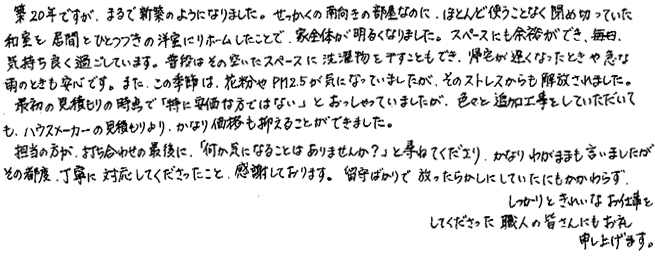 築20年ですが、まるで新築のようになりました。せっかくの南向きの部屋なのに、ほとんど使うことなく閉め切っていた
和室を居間とひとつづきの洋室にリホームしたことで、家全体が明るくなりました。スペースにも余裕ができ、毎日、
気持ち良く過ごしています。普段はその空いたスペースに洗濯物を干すこともでき、帰宅が遅くなったときや急な
雨のときも安心です。また、この季節は、花粉やPM2.5が気になっていましたが、そのストレスからも解放されました。
最初の見積もりの時点で「特に安価な方ではない」とおっしゃっていましたが、色々と追加工事をしていただいて
も、ハウスメーカーの見積もりより、かなり価格も抑えることができました。
担当の方が、打ち合わせの最後に、「何か気になることはありませんか？」と尋ねてくださり、かなりわがままも言いましたが
その都度、丁寧に対応してくださったこと、感謝しております。留守ばかりで放ったらかしにしていたにもかかわらず、
しっかりときれいなお仕事を
してくださった職人の皆さんにもお礼
申し上げます。